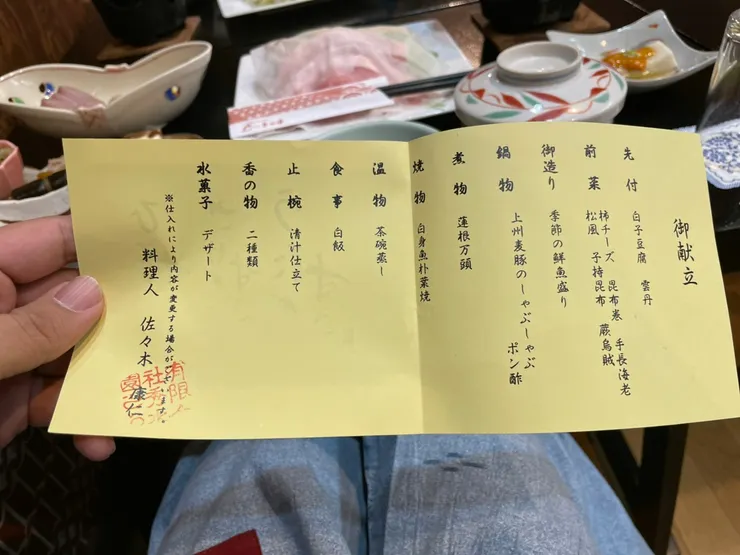 御献立
先付 白子豆腐 雲丹
前菜 柿チーズ 昆布巻 手長海老
松風 子持昆布 蕨烏賊
御造り 季節の鮮魚盛り
鍋物 上州麦豚のしゃぶしゃぶ
ポン酢
煮物 蓮根万頭
焼物 白身魚朴葉焼
温物 茶碗蒸し
食事 白飯
止椀 清汁仕立て
香の物 二種類
水菓子 デザート
※仕入れにより内容が変更する場合が
料理人 佐々木 康仁
有限